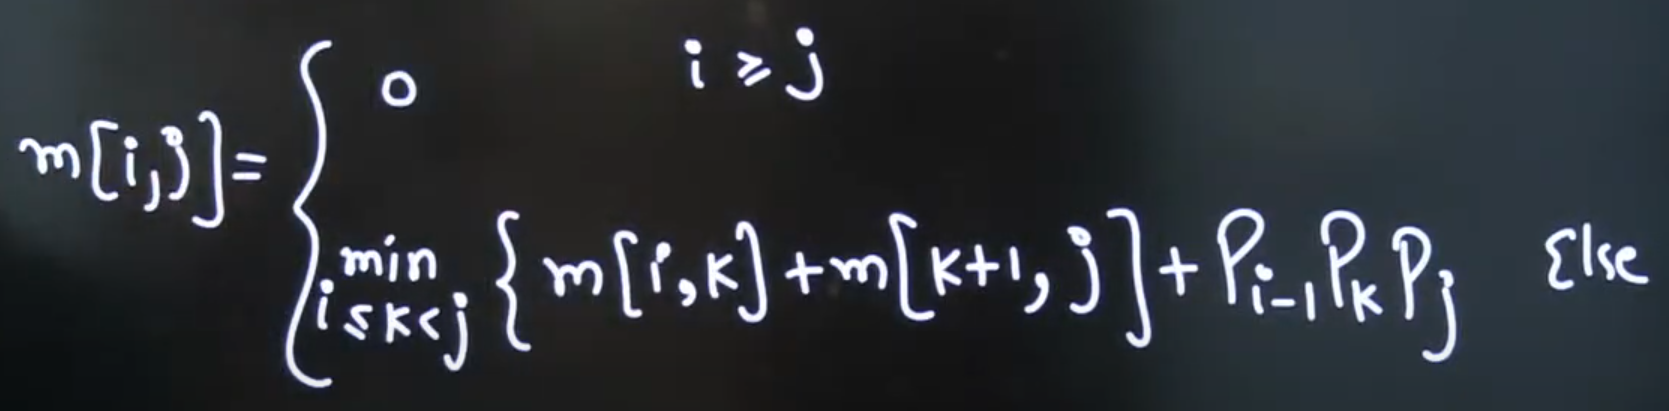 m[i,j]= { 0 i ≥ j
min i≤k<j { m[i,k]+m[k+1, j]+ P_{i-1} P_k P_j Else